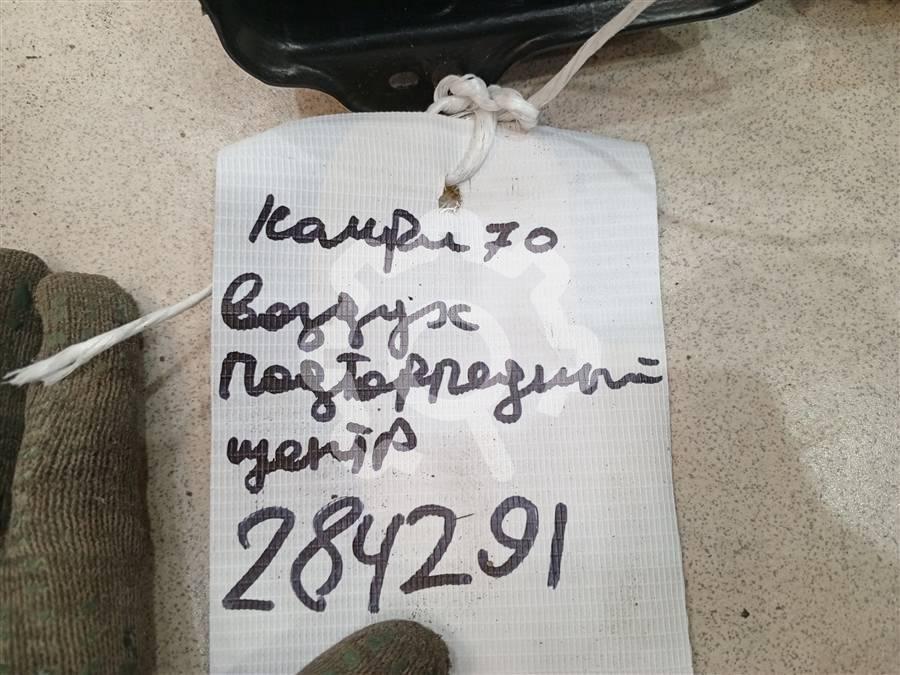 Камри 70
Воздух
Подторпедный
центр
284291